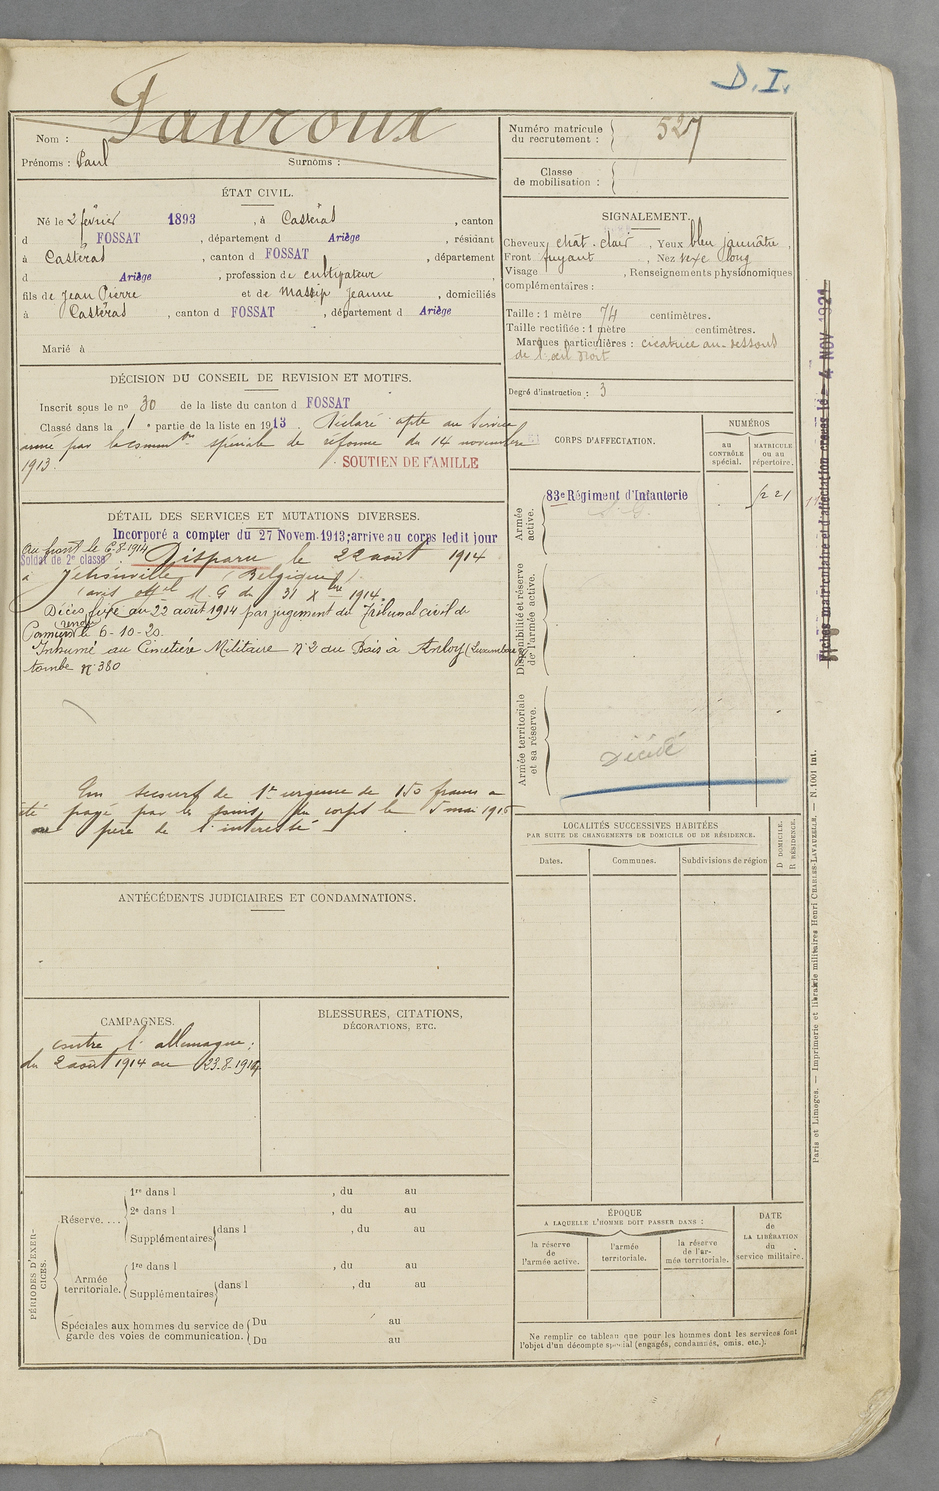 D.I.
Fauroux
Nom :
Prénoms : Paul Surnoms :
Numéro matricule du recrutement : 527
Classe de mobilisation :
ÉTAT CIVIL.
Né le 2 février 1893, à Castéras, canton
d FOSSAT, département d Ariège, résidant
à Castéras, canton d FOSSAT, département
d Ariège, profession de cultivateur
fils de Jean Pierre et de Massip Jeanne, domiciliés
à Castéras, canton d FOSSAT, département d Ariège
Marié à
SIGNALEMENT.
Cheveux chât. clair, Yeux bleu jaunâtre,
Front fuyant, Nez vexe long
Visage , Renseignements physionomiques
complémentaires :
Taille : 1 mètre 74 centimètres.
Taille rectifiée : 1 mètre centimètres.
Marques particulières : cicatrice au-dessous
de l'œil droit
Degré d'instruction : 3
DÉCISION DU CONSEIL DE REVISION ET MOTIFS.
Inscrit sous le nº 30 de la liste du canton d FOSSAT
Classé dans la 1 e partie de la liste en 1913. Déclaré apte au Service
armé par la spéciale de réforme du 14 novembre
1913. SOUTIEN DE FAMILLE
DÉTAIL DES SERVICES ET MUTATIONS DIVERSES.
Incorporé a compter du 27 Novem. 1913; arrive au corps ledit jour
Au front le 6-8-1914
Soldat de 2e classe Disparu le 22 août 1914
à Jehonville (Belgique).
(avis offel M. G du 31 Xbre 1914.
Décès fixé au 22 août 1914 par jugement du Tribunal civil de
Pamiers rendu le 6-10-20.
Inhumé au Cimetière Militaire nº 2 du Bois à Anloy (Luxembourg)
tombe nº 380
Un secours de 1re urgence de 150 francs a
été payé par les soins du corps le 5 mai 1915
au père de l'intéressé
CORPS D'AFFECTATION.
NUMÉROS
au CONTRÔLE spécial.
MATRICULE ou au répertoire.
Armée active.
83e Régiment d'Infanterie
Disponibilité et réserve de l'armée active.
Armée territoriale et sa réserve.
Décédé
Fiches matriculaire et d'affectation créées le 4 NOV 1921
LOCALITÉS SUCCESSIVES HABITÉES
PAR SUITE DE CHANGEMENTS DE DOMICILE OU DE RÉSIDENCE.
Dates. Communes. Subdivisions de région
D DOMICILE.
R RÉSIDENCE.
ANTÉCÉDENTS JUDICIAIRES ET CONDAMNATIONS.
CAMPAGNES.
contre l'allemagne :
du 2 août 1914 au 23.8.1914
BLESSURES, CITATIONS,
DÉCORATIONS, ETC.
PÉRIODES D'EXERCICES.
Réserve....
1re dans l , du au
2e dans l , du au
Supplémentaires dans l , du au
Armée territoriale.
1re dans l , du au
Supplémentaires dans l , du au
Spéciales aux hommes du service de garde des voies de communication.
Du au
Du au
ÉPOQUE
A LAQUELLE L'HOMME DOIT PASSER DANS :
la réserve de l'armée active.
l'armée territoriale.
la réserve de l'armée territoriale.
DATE de LA LIBÉRATION du service militaire.
Ne remplir ce tableau que pour les hommes dont les services font
l'objet d'un décompte spécial (engagés, condamnés, omis, etc.).
Paris et Limoges. — Imprimerie et librairie militaires Henri CHARLES-LAVAUZELLE. — N. 1001 int.